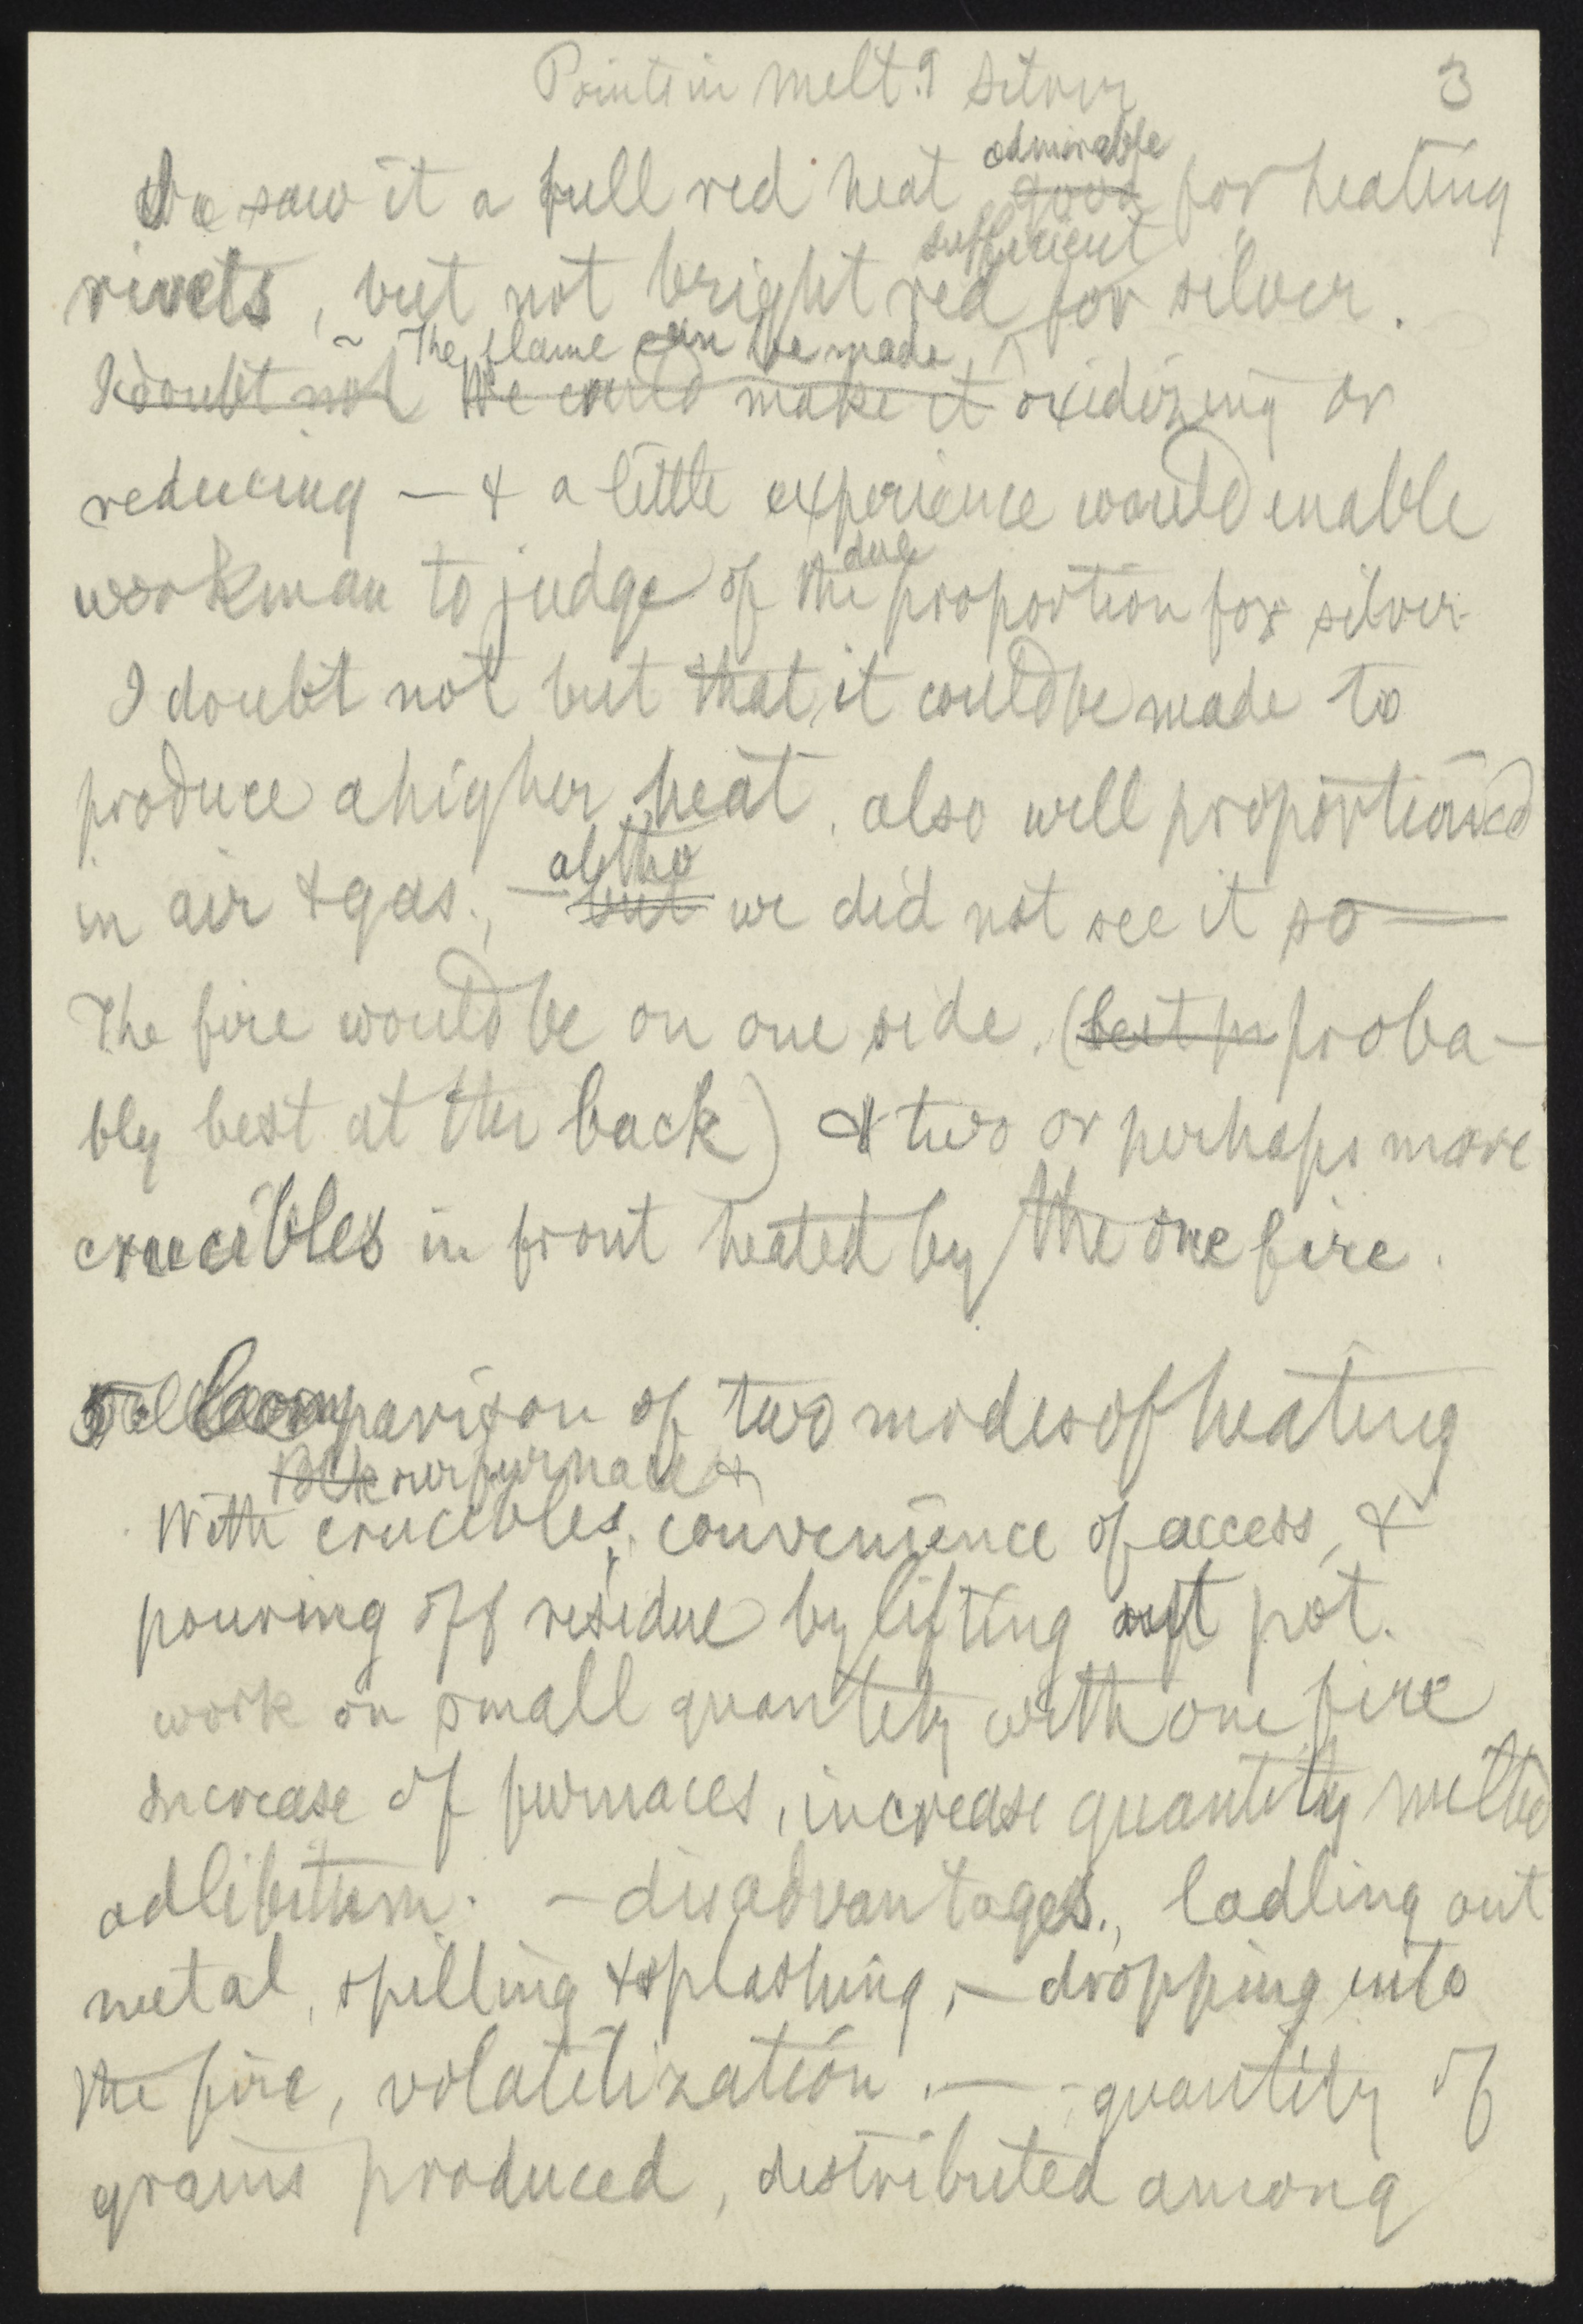 Points in Melt.g Silver 3
admirable
We saw it a full red heat good for heating
sufficient
rivets, but not bright red for silver.
The flame can be made
I doubt not We could make it oxidizing or
reducing — & a little experience would enable
due
workman to judge of the proportion for silver
I doubt not but that it could be made to
produce a higher heat, also well proportioned
altho
in air & gas., — but we did not see it so —
The fire would be on one side, (best in proba-
bly best at the back) & two or perhaps more
crucibles in front heated by the one fire.
Comparison of two modes of heating
our furnace &
With crucibles, convenience of access, &
pouring off residue by lifting out pot.
work on small quantity with one fire
increase of furnaces, increase quantity melted
adlibitum. — disadvantages., ladling out
metal, spilling & splashing, — dropping into
the fire, volatilization. — - quantity of
grains produced, distributed among